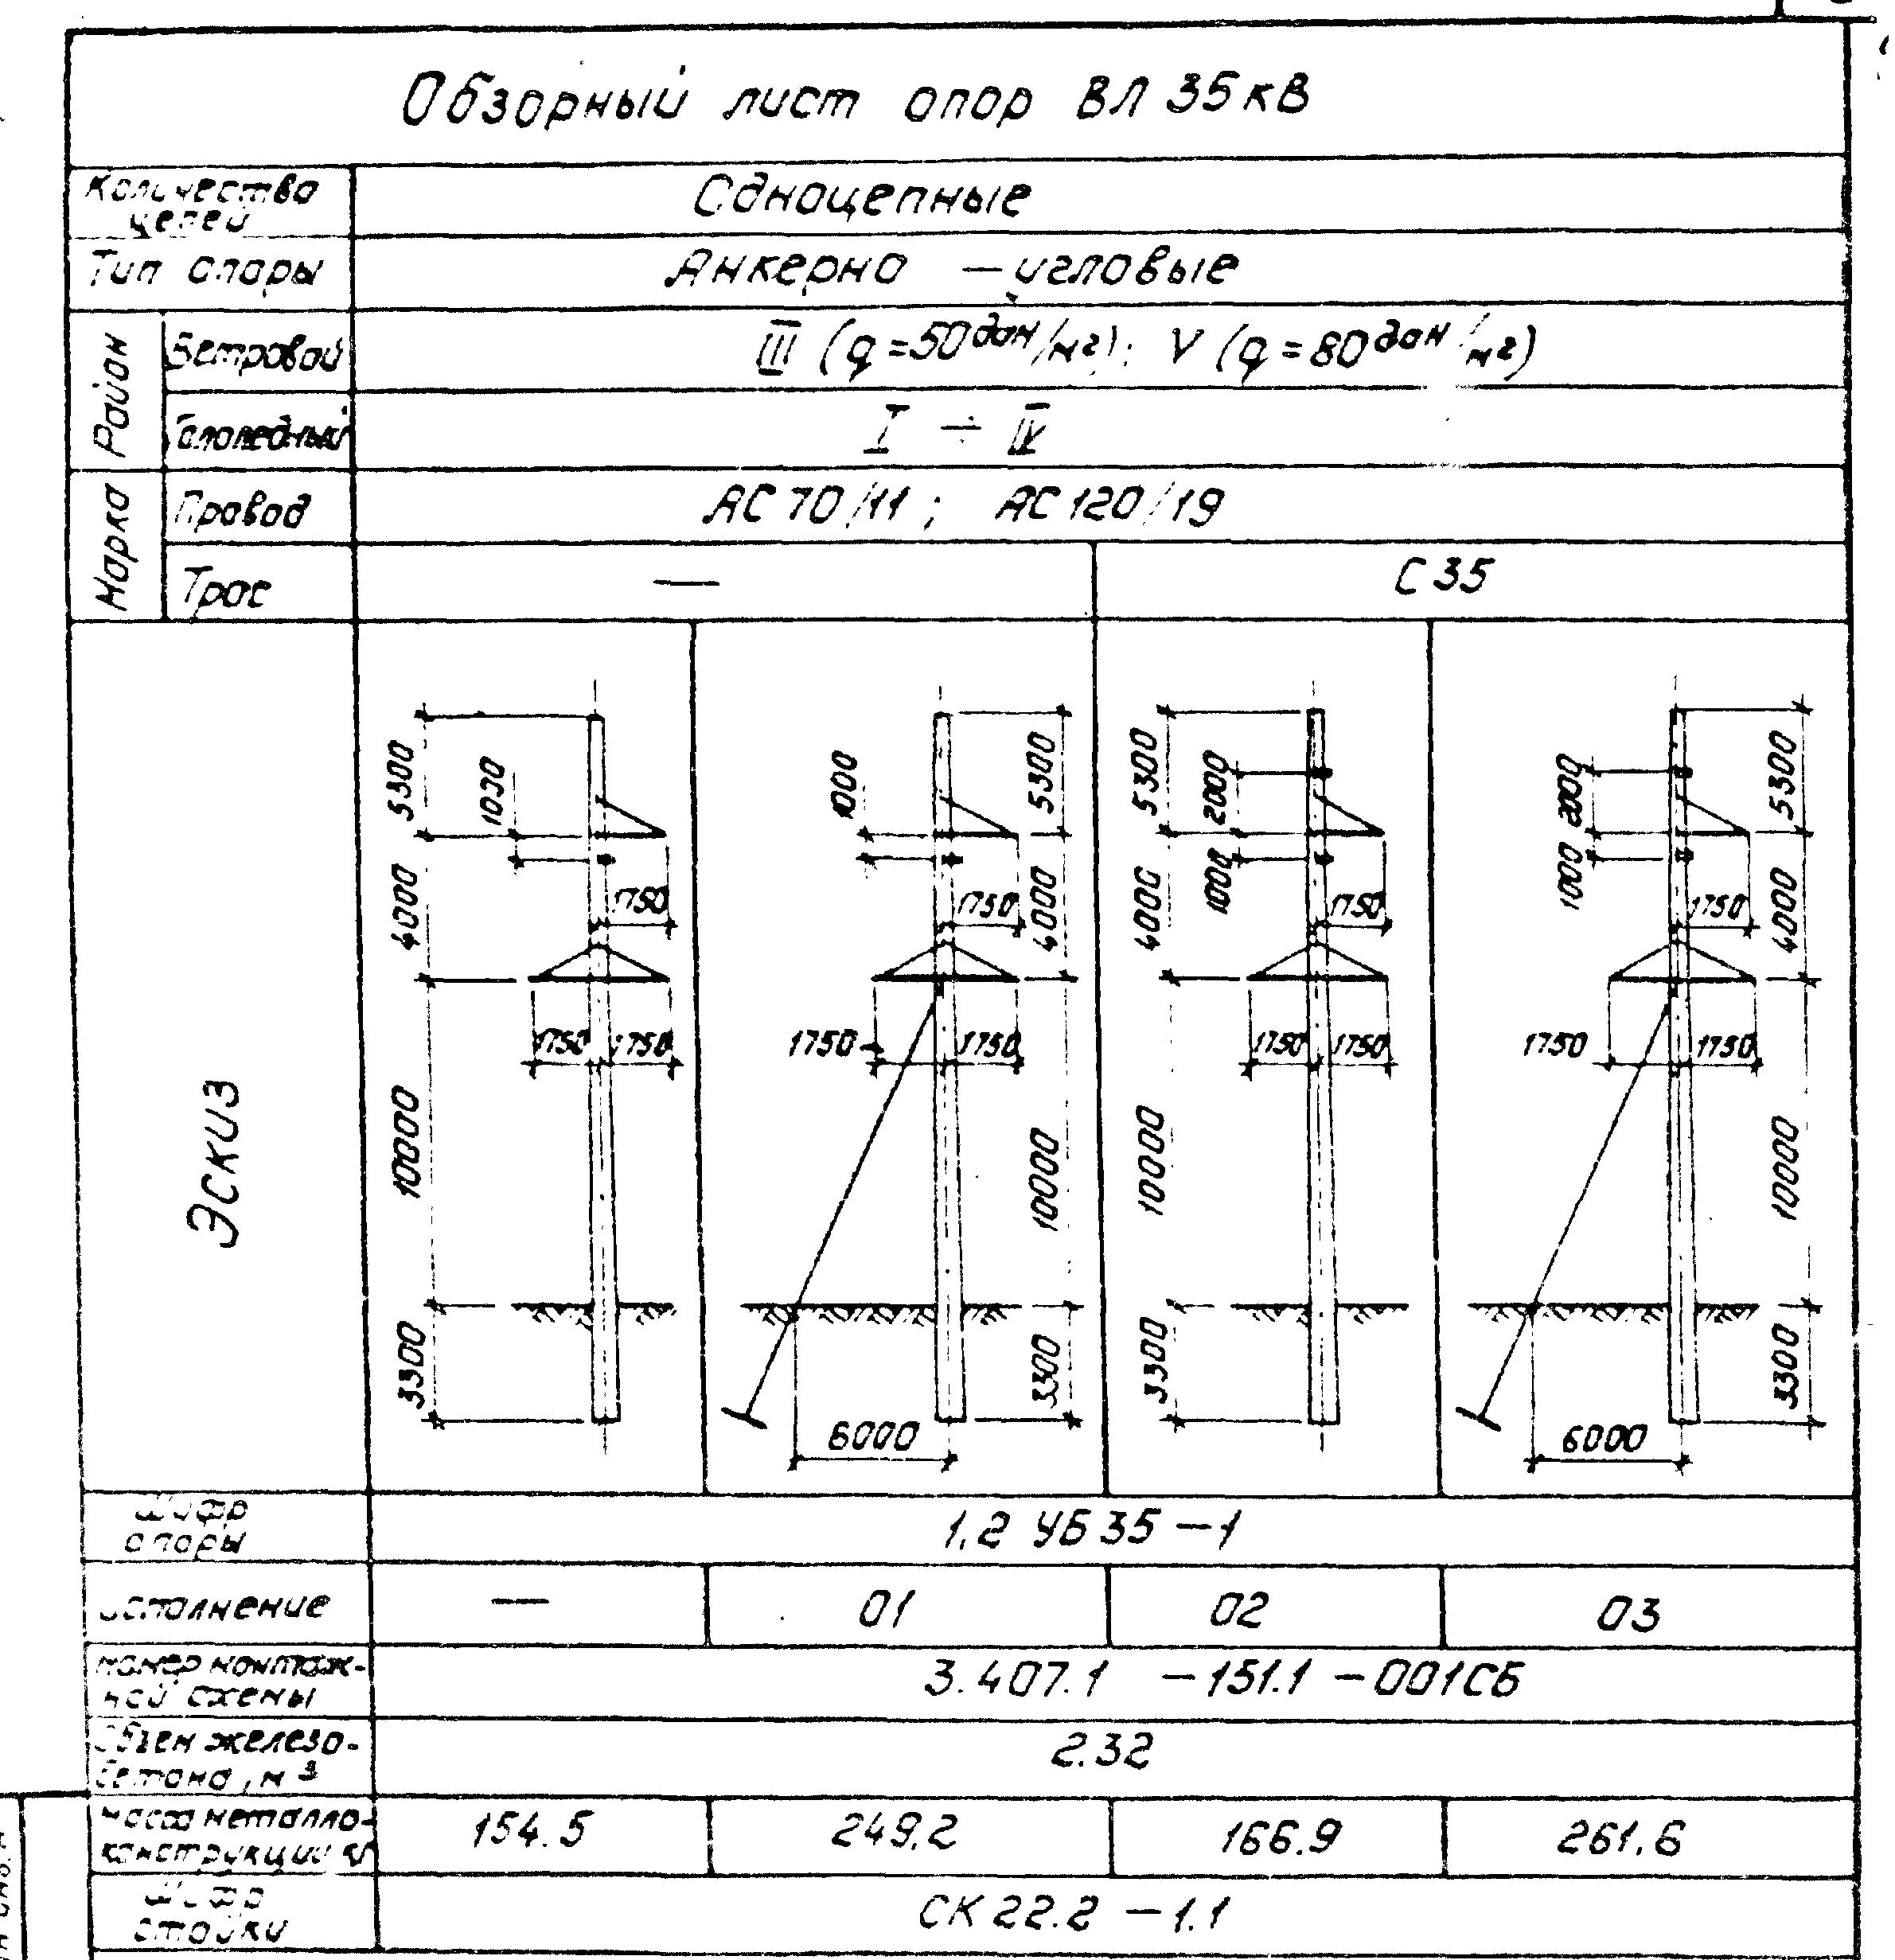 Обзорный лист опор ВЛ 35 кВ
Количества
цепей
Одноцепные
Тип опоры
Анкерно – угловые
Район
Ветровой
III (q = 50 дан/м²); V (q = 80 дан/м²)
Гололедный
I ÷ IV
Марка
Провод
АС 70/11; АС 120/19
Трос
—
С 35
Эскиз
5300
1000
4000
1750
1750
1750
10000
3300
1000
5300
1750
4000
1750
1750
10000
3300
6000
5300
2000
1000
4000
1750
1750
1750
10000
3300
2000
5300
1000
1750
4000
1750
1750
10000
3300
6000
Шифр
опоры
1.2 УБ 35 – 1
Исполнение
—
01
02
03
Номер монтаж-
ной схемы
3.407.1 – 151.1 – 001СБ
Объем железо-
бетона, м³
2.32
Масса металло-
конструкции кг
154.5
249.2
166.9
261.6
Шифр
стойки
СК 22.2 – 1.1